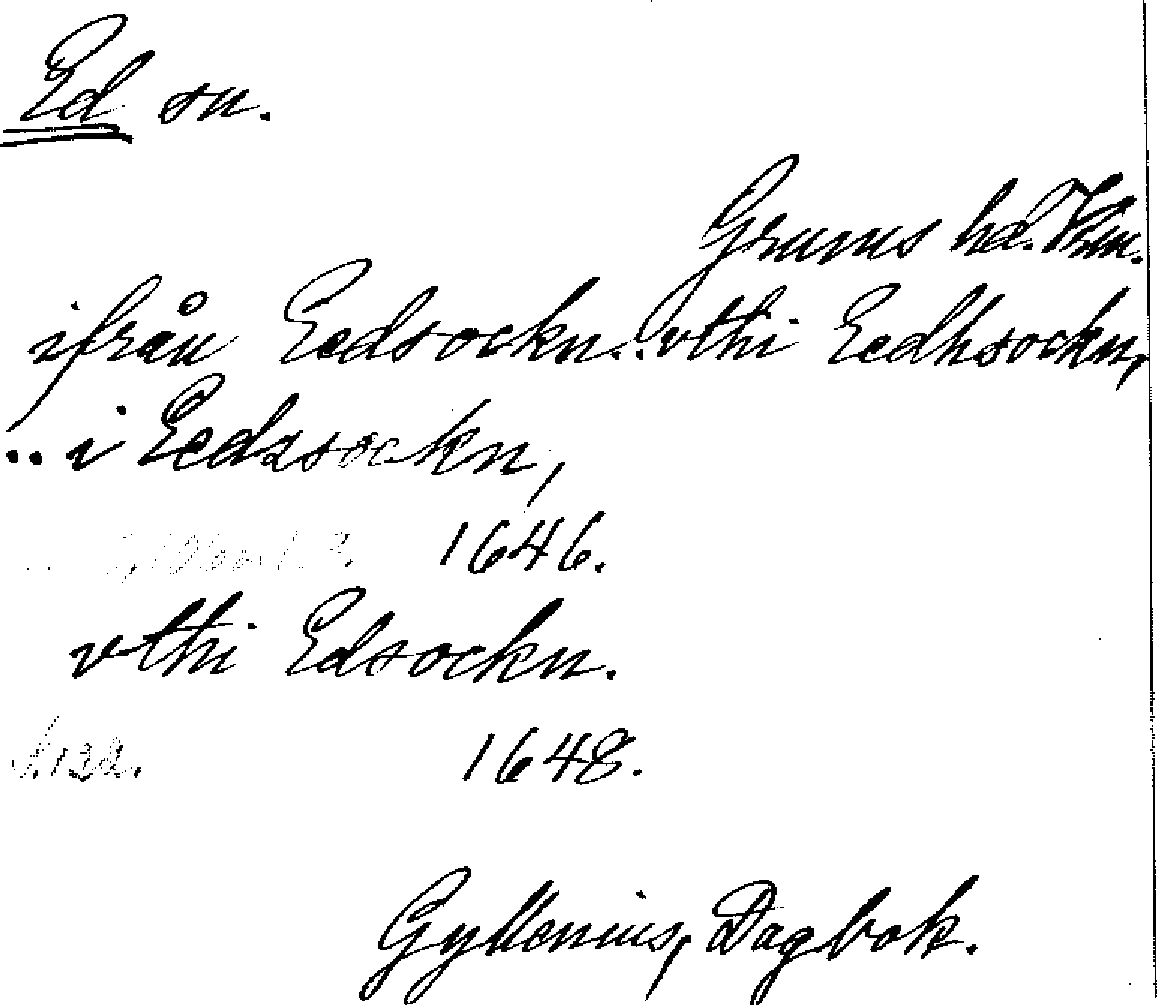 Ed sn.
Grums hd. Vrm.
ifrån Eedsockn.. vthi Eedhsockn,
.. i Eedzsockn,
1646.
vthi Edsockn.
s. 132. 1648.
Gyllenius, Dagbok.